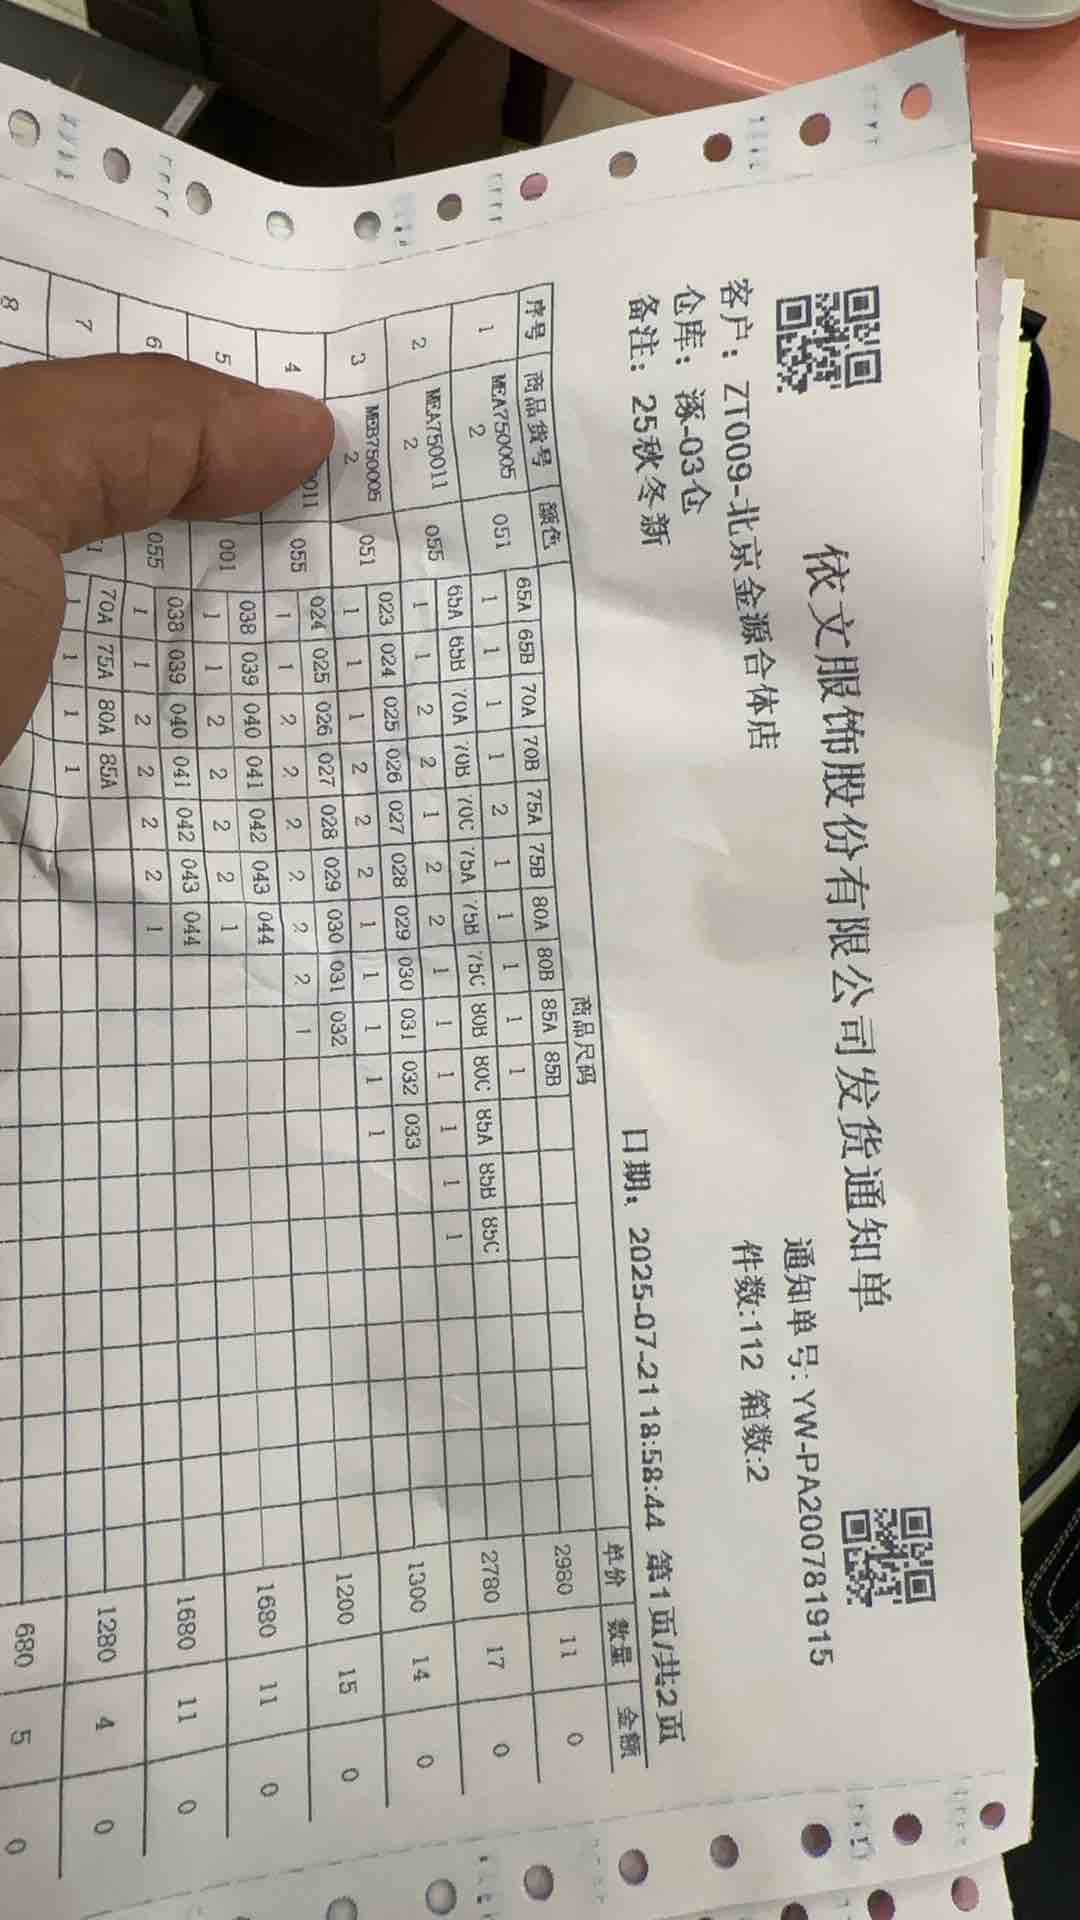 依文服饰股份有限公司发货通知单
通知单号: YW-PA200781915
客户: ZT009-北京金源合体店
件数:112 箱数:2
仓库: 涿-03仓
备注: 25秋冬新
日期: 2025-07-21 18:58:44 第1页/共2页
序号 商品货号 颜色 商品尺码 单价 数量 金额
65A 65B 70A 70B 75A 75B 80A 80B 85A 85B
1 MEA7500052 051 1 1 1 1 2 1 1 1 1 1 2980 11 0
65A 65B 70A 70B 70C 75A 75B 75C 80B 80C 85A 85B 85C
2 MEA7500112 055 1 1 2 2 1 2 2 1 1 1 1 1 1 2780 17 0
023 024 025 026 027 028 029 030 031 032 033
3 MEB7500052 051 1 1 1 2 2 2 1 1 1 1 1 1300 14 0
024 025 026 027 028 029 030 031 032
4 011 055 1 1 2 2 2 2 2 2 1 1200 15 0
038 039 040 041 042 043 044
5 001 1 1 2 2 2 2 1 1680 11 0
038 039 040 041 042 043 044
6 055 1 1 2 2 2 2 1 1680 11 0
70A 75A 80A 85A
7 1 1 1 1 1280 4 0
8 680 5 0